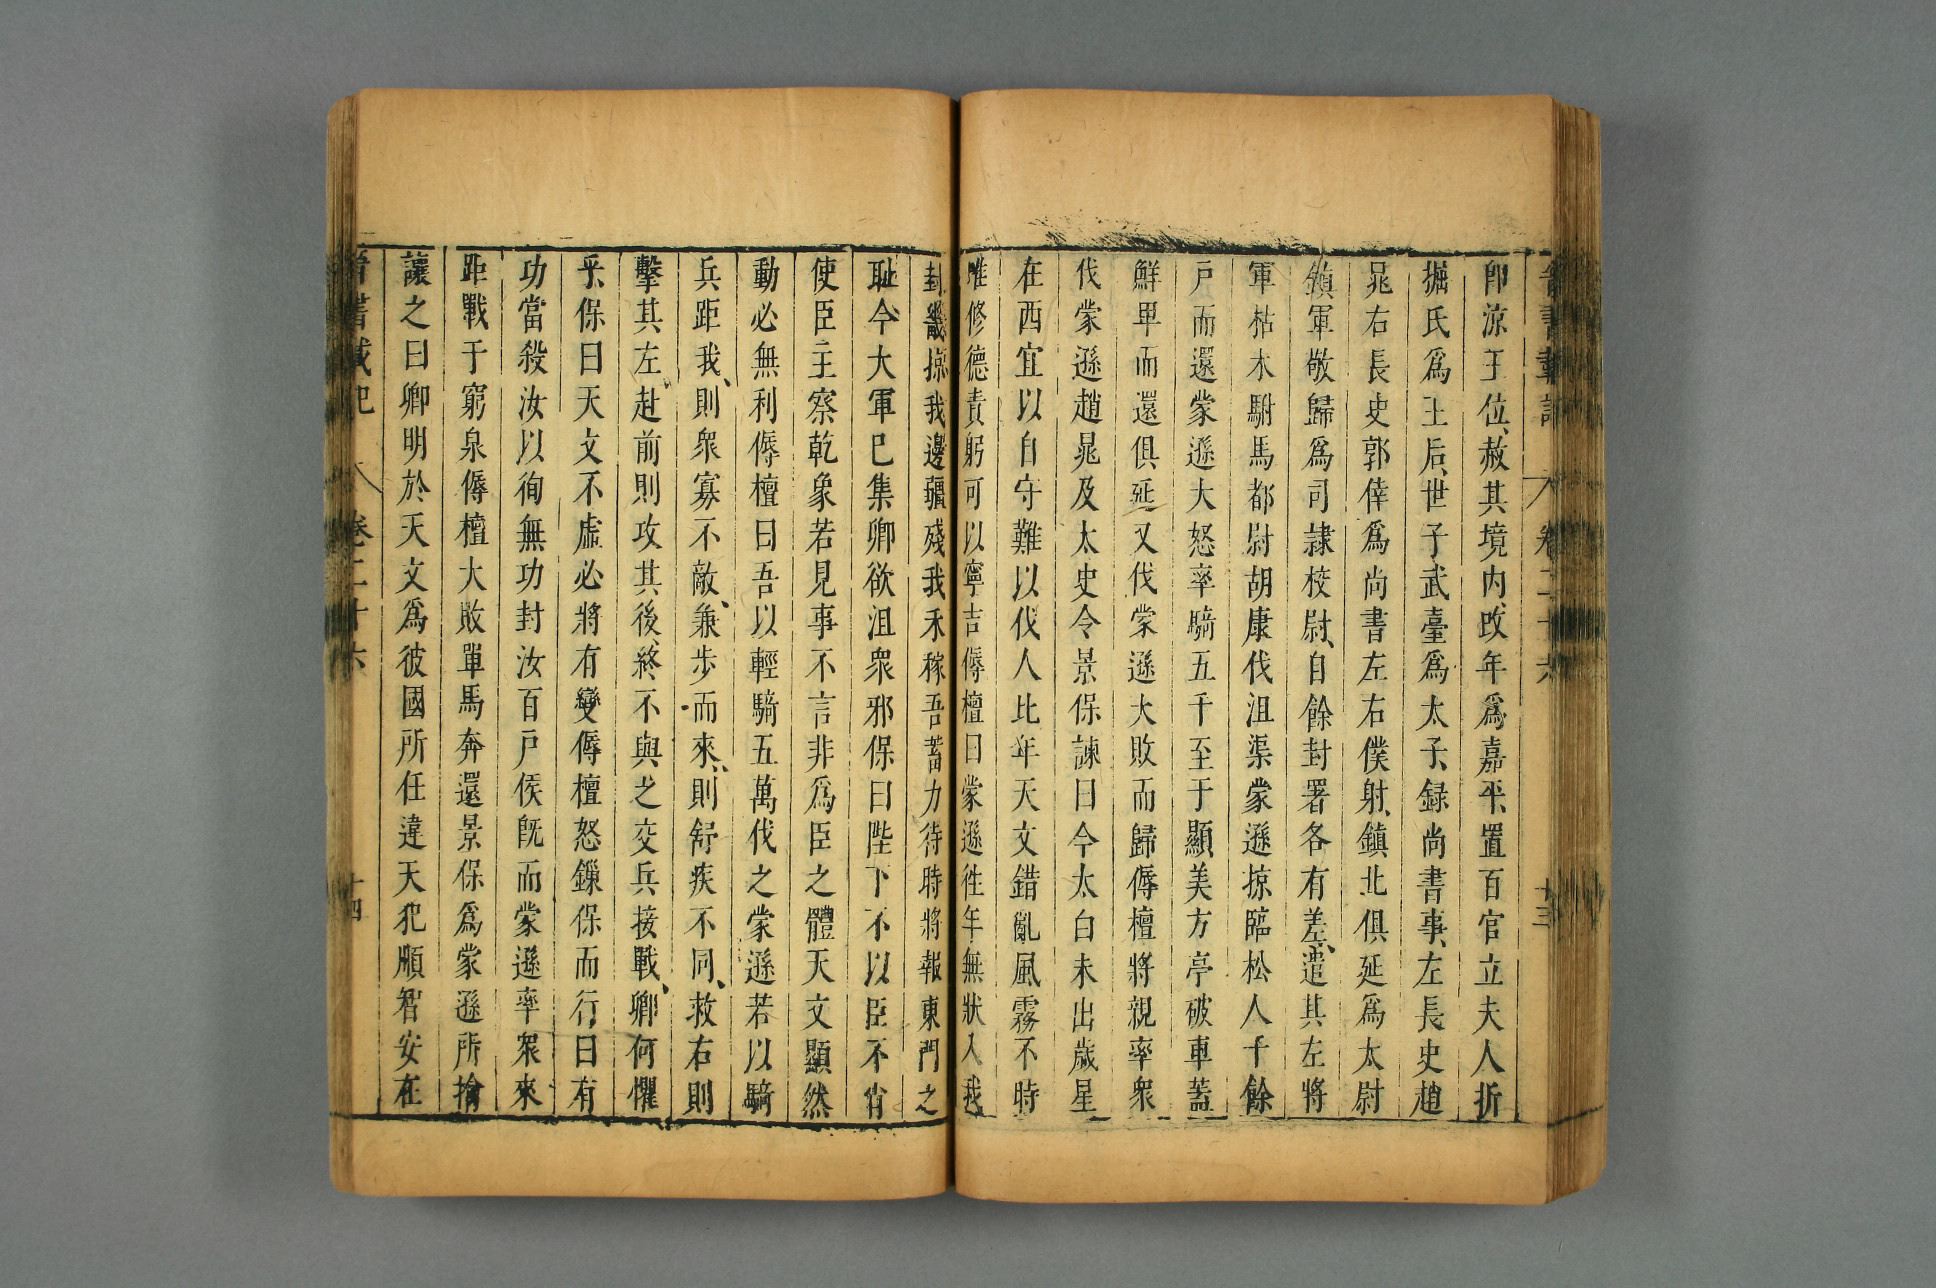 晉書載記 卷二十六 十三
卽涼王位赦其境内改年爲嘉平置百官立夫人折
掘氏爲王后世子武臺爲太子録尚書事左長史趙
晁右長史郭倖爲尚書左右僕射鎮北俱延爲太尉
鎮軍敬歸爲司隸校尉自餘封署各有差遣其左將
軍枯木駙馬都尉胡康伐沮渠蒙遜掠臨松人千餘
戸而還蒙遜大怒率騎五千至于顯美方亭破車蓋
鮮卑而還俱延又伐蒙遜大敗而歸傉檀將親率衆
伐蒙遜趙晁及太史令景保諫曰今太白未出歲星
在西宜以自守難以伐人比年天文錯亂風霧不時
唯修德責躬可以寧吉傉檀曰蒙遜徃年無狀入我
封畿掠我邊疆殘我禾稼吾蓄力待時將報東門之
恥今大軍已集卿欲沮衆邪保曰陛下不以臣不肖
使臣主察乾象若見事不言非爲臣之體天文顯然
動必無利傉檀曰吾以輕騎五萬伐之蒙遜若以騎
兵距我則衆寡不敵兼步而來則舒疾不同救右則
擊其左赴前則攻其後終不與之交兵接戰卿何懼
乎保曰天文不虛必將有變傉檀怒鏁保而行曰有
功當殺汝以徇無功封汝百戸侯旣而蒙遜率衆來
距戰于窮泉傉檀大敗單馬奔還景保爲蒙遜所擒
讓之曰卿明於天文爲彼國所任違天犯順智安在
晉書載記 卷二十六 十四